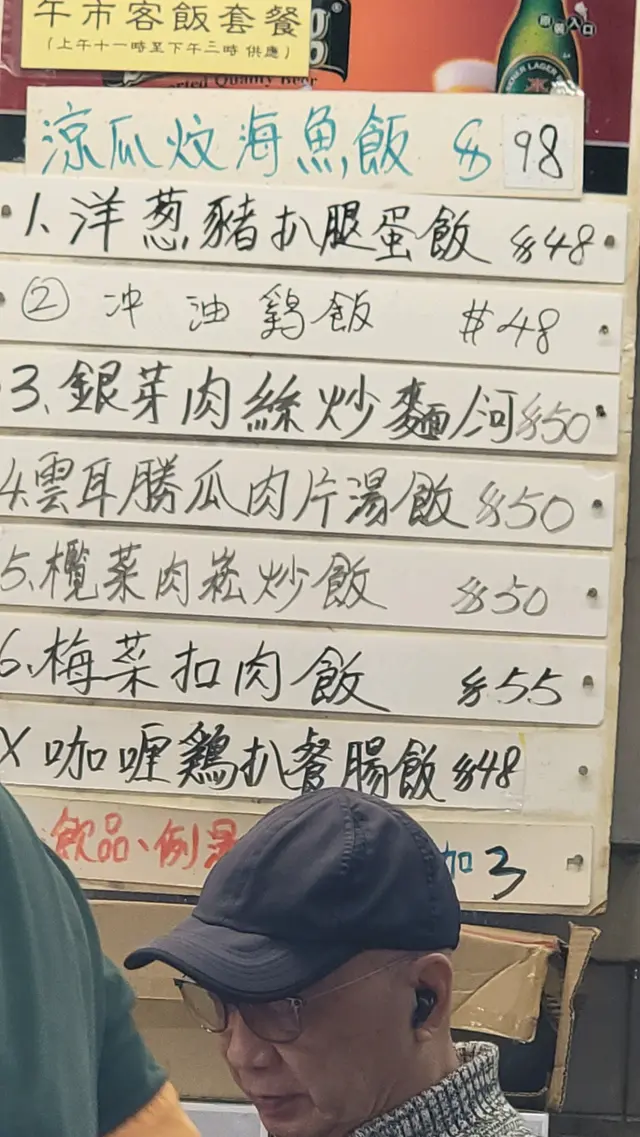 午市客飯套餐
(上午十一時至下午三時 供應)
Quality Beer
原裝入口
LAGER
涼瓜炆海魚飯 $98
1、洋葱豬扒腿蛋飯 $48
② 冲油鷄飯 #48
3、銀芽肉絲炒麵/河 $50
4.雲耳勝瓜肉片湯飯 $50
5、欖菜肉崧炒飯 $50
6、梅菜扣肉飯 $55
X 咖喱鷄扒餐腸飯 $48
飲品、例湯
加3